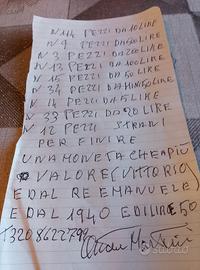 N 114 PEZZI DA 10 LIRE
N 9 PEZZI DA 500 LIRE
N 3 PEZZI DA 200 LIRE
N 13 PEZZI DA 100 LIRE
N 15 PEZZI DA 50 LIRE
N 34 PEZZI DA MINI 50 LIRE
N 14 PEZZI DA 5 LIRE
N 33 PEZZI DA 20 LIRE
N 12 PEZZI STRANI
PER FINIRE
UNA MONETA CHE A PIÙ
VALORE (VITTORIO
E DAL RE EMANUELE)
E DAL 1940 E DI LIRE 50